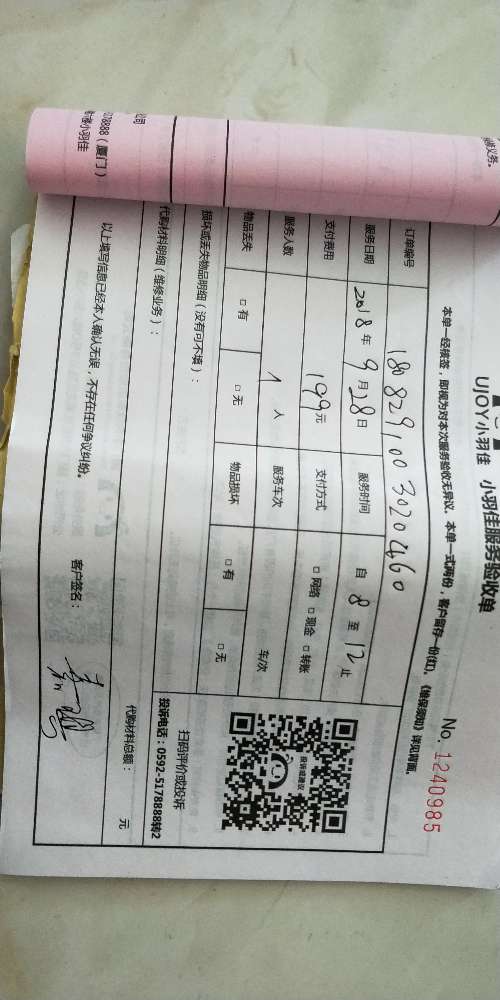 UJOY小羽佳 小羽佳服务验收单
No. 1240985
本单一经核签，即视为对本次服务验收无异议。本单一式两份，客户留存一份(红)。《维保须知》详见背面。
订单编号 1808291003020460
服务日期 2018年9月28日 服务时间 自 8 至 12 止
支付费用 199元 支付方式 □网络 □现金 □转账
服务人数 1 人 服务车次 车/次
物品丢失 □有 □无 物品损坏 □有 □无
损坏或丢失物品明细（没有可不填）：
投诉或建议
扫码评价或投诉
投诉电话：0592-5178888转2
代购材料明细（维修业务）：
代购材料总额： 元
以上填写信息已经本人确认无误，不存在任何争议纠纷。
客户签名：
公司
78888（厦门）
小羽佳
义务。